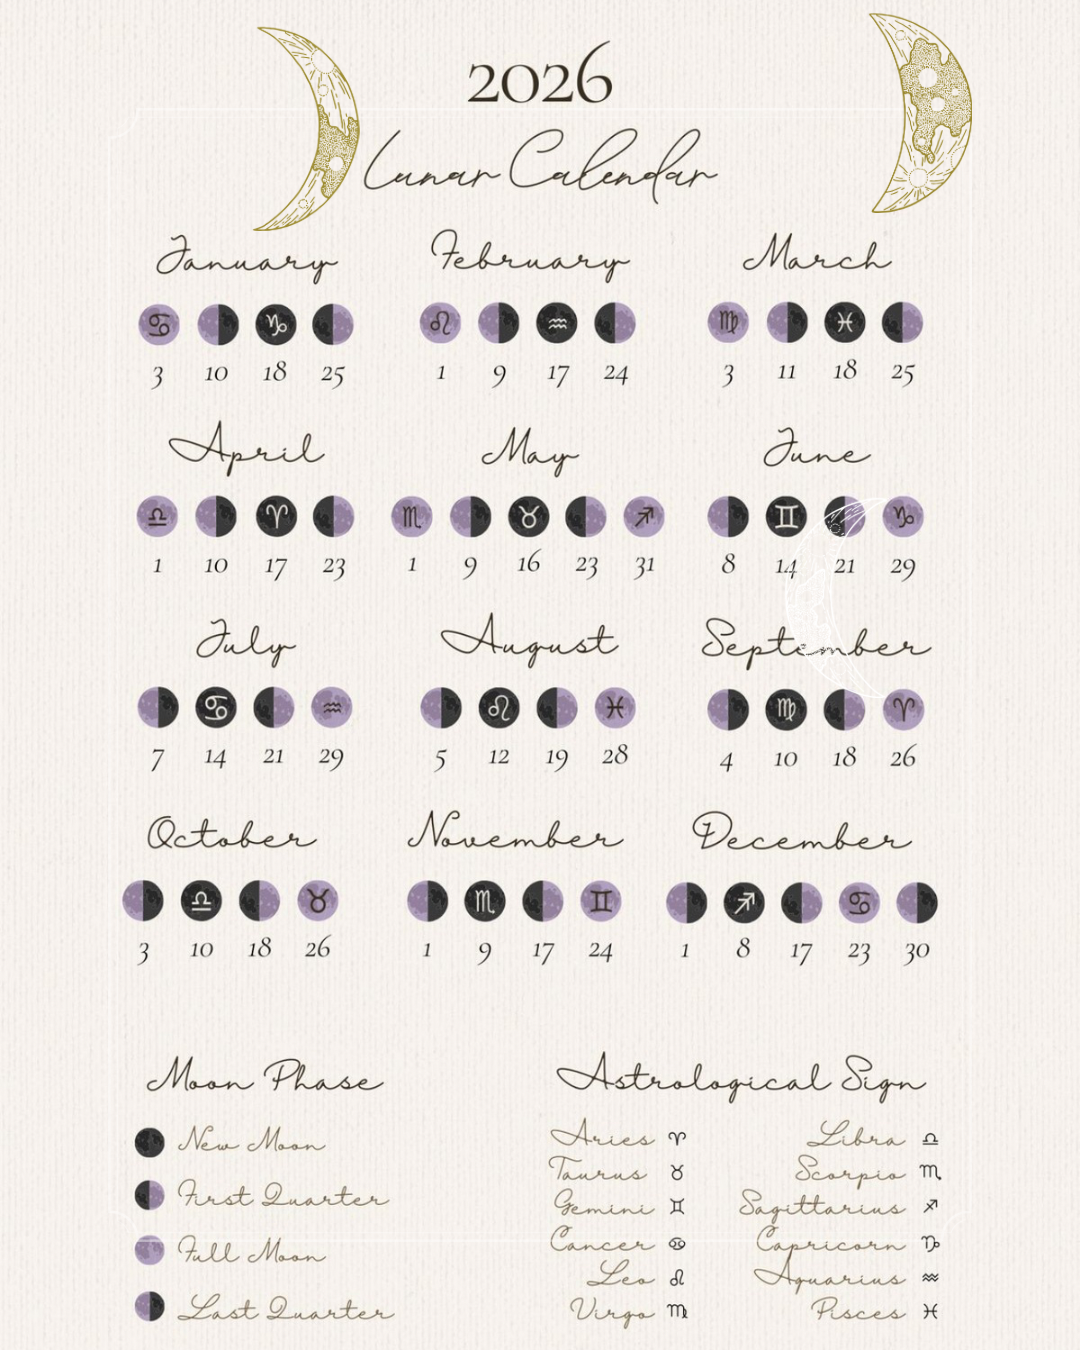 2026
Lunar Calendar
January February March
♋ ♑ ♌ ♒ ♍ ♓
3 10 18 25 1 9 17 24 3 11 18 25
April May June
♎ ♈ ♏ ♉ ♐ ♊ ♑
1 10 17 23 1 9 16 23 31 8 14 21 29
July August September
♋ ♒ ♌ ♓ ♍ ♈
7 14 21 29 5 12 19 28 4 10 18 26
October November December
♎ ♉ ♏ ♊ ♐ ♋
3 10 18 26 1 9 17 24 1 8 17 23 30
Moon Phase Astrological Sign
New Moon Aries ♈ Libra ♎
Taurus ♉ Scorpio ♏
First Quarter Gemini ♊ Sagittarius ♐
Full Moon Cancer ♋ Capricorn ♑
Leo ♌ Aquarius ♒
Last Quarter Virgo ♍ Pisces ♓